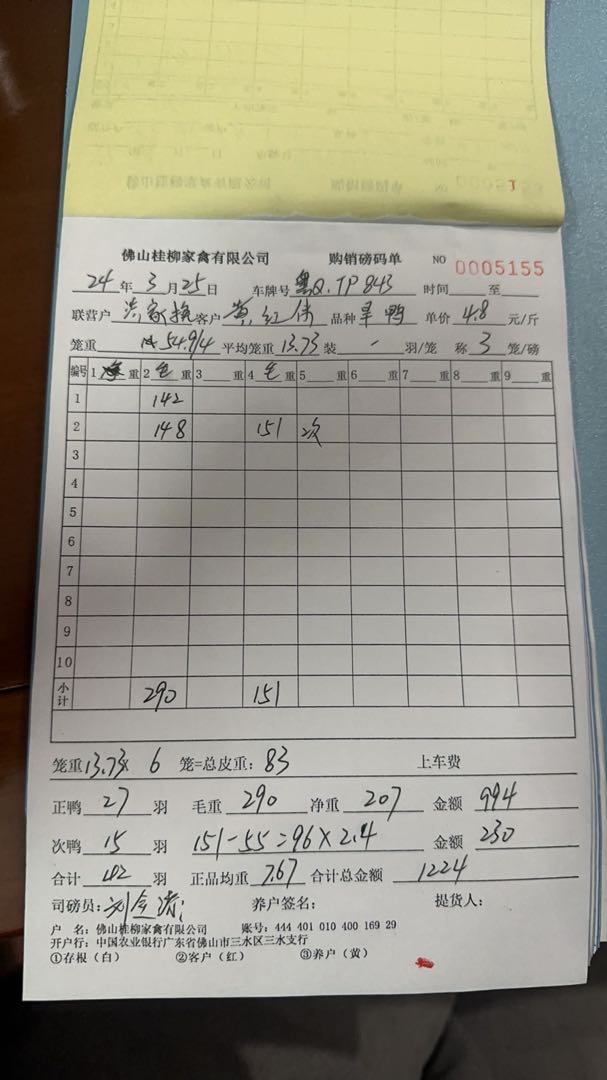 佛山桂柳家禽有限公司 购销磅码单 NO 0005155
24 年 3 月 25 日 车牌号 粤Q.TP843 时间 至
联营户 客户 黄红伟 品种 旱鸭 单价 4.8 元/斤
笼重 54.9/4 平均笼重 13.73 装 - 羽/笼 称 3 笼/磅
编号 1 重 2 毛 重 3 重 4 毛 重 5 重 6 重 7 重 8 重 9 重
1 142
2 148 151 次
3
4
5
6
7
8
9
10
小计 290 151
笼重 13.73 x 6 笼=总皮重: 83 上车费
正鸭 27 羽 毛重 290 净重 207 金额 994
次鸭 15 羽 151-55=96×2.4 金额 230
合计 42 羽 正品均重 7.67 合计总金额 1224
司磅员: 养户签名: 提货人:
户 名: 佛山桂柳家禽有限公司 账号: 444 401 010 400 169 29
开户行: 中国农业银行广东省佛山市三水区三水支行
①存根(白) ②客户(红) ③养户(黄)